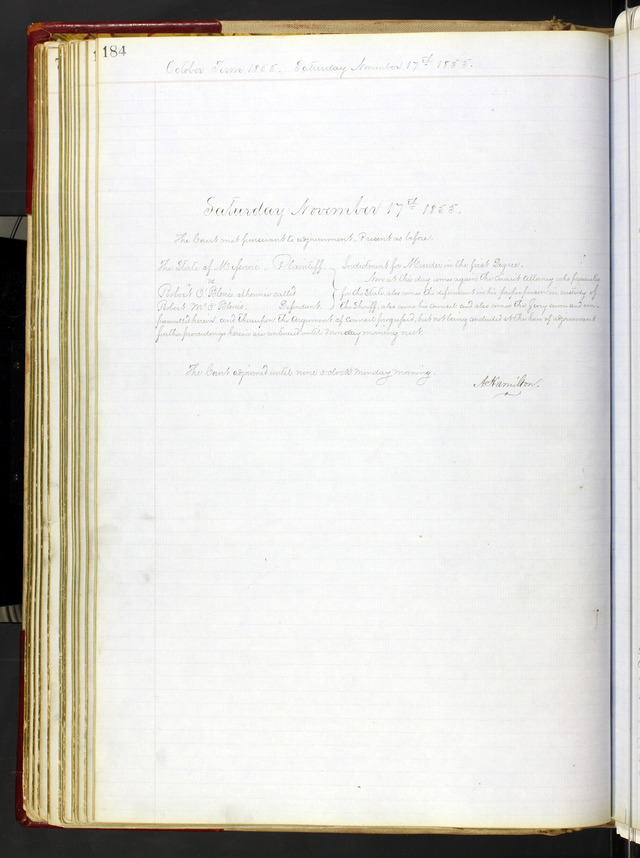 184
October Term 1855. Saturday November 17th 1855.
Saturday November 17th 1855.
The Court met pursuant to adjournment. Present as before.
The State of Missouri. Plaintiff } Indictment for Murder in the first Degree.
vs Now at this day comes again the Circuit Attorney who prosecutes
Robert O'Blenis otherwise called for the State, also comes the defendant in his proper person in custody of
Robert McO'Blenis. Defendant the Sheriff, also comes his counsel and also comes the Jury sworn and em-
panneled herein and Thereupon the argument of counsel progressed, but not being concluded at the hour of adjournment
further proceedings herein are continued until Monday morning next.
The Court adjourned until nine o'clock Monday morning.
A Hamilton.